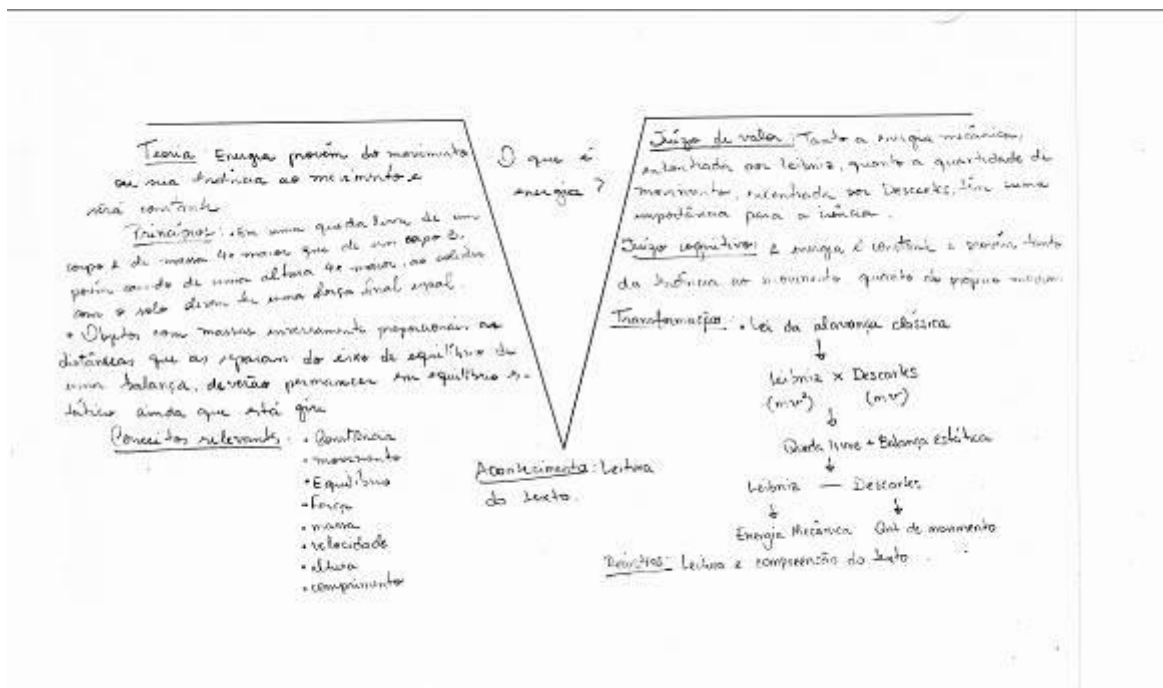 Teoria: Energia provém do movimento
ou sua tendência ao movimento e
será constante
Princípios: • Em uma queda livre de um
corpo A de massa 4x maior que de um corpo B,
porém caindo de uma altura 4x maior, ao colidir
com o solo devem ter uma força final igual.
• Objetos com massas inversamente proporcionais as
distâncias que as separam do eixo de equilíbrio de
uma balança, deverão permanecer em equilíbrio es-
tático ainda que está gire
Conceitos relevantes: • Constância
• movimento
• Equilíbrio
• Força
• massa
• velocidade
• altura
• comprimento
O que é
energia?
Acontecimento: Leitura
do texto.
Juízo de valor: Tanto a energia mecânica,
encontrada por Leibniz, quanto a quantidade de
movimento, encontrada por Descartes, têm uma
importância para a ciência.
Juízo cognitivo: A energia é constante e provém tanto
da tendência ao movimento quanto do próprio movim.
Transformação: • Lei da alavanca clássica
Leibniz x Descartes
(mv²) (mv)
Queda livre + Balança estática
Leibniz — Descartes
Energia Mecânica Qnt de movimento
Registros: Leitura e compreensão do texto.